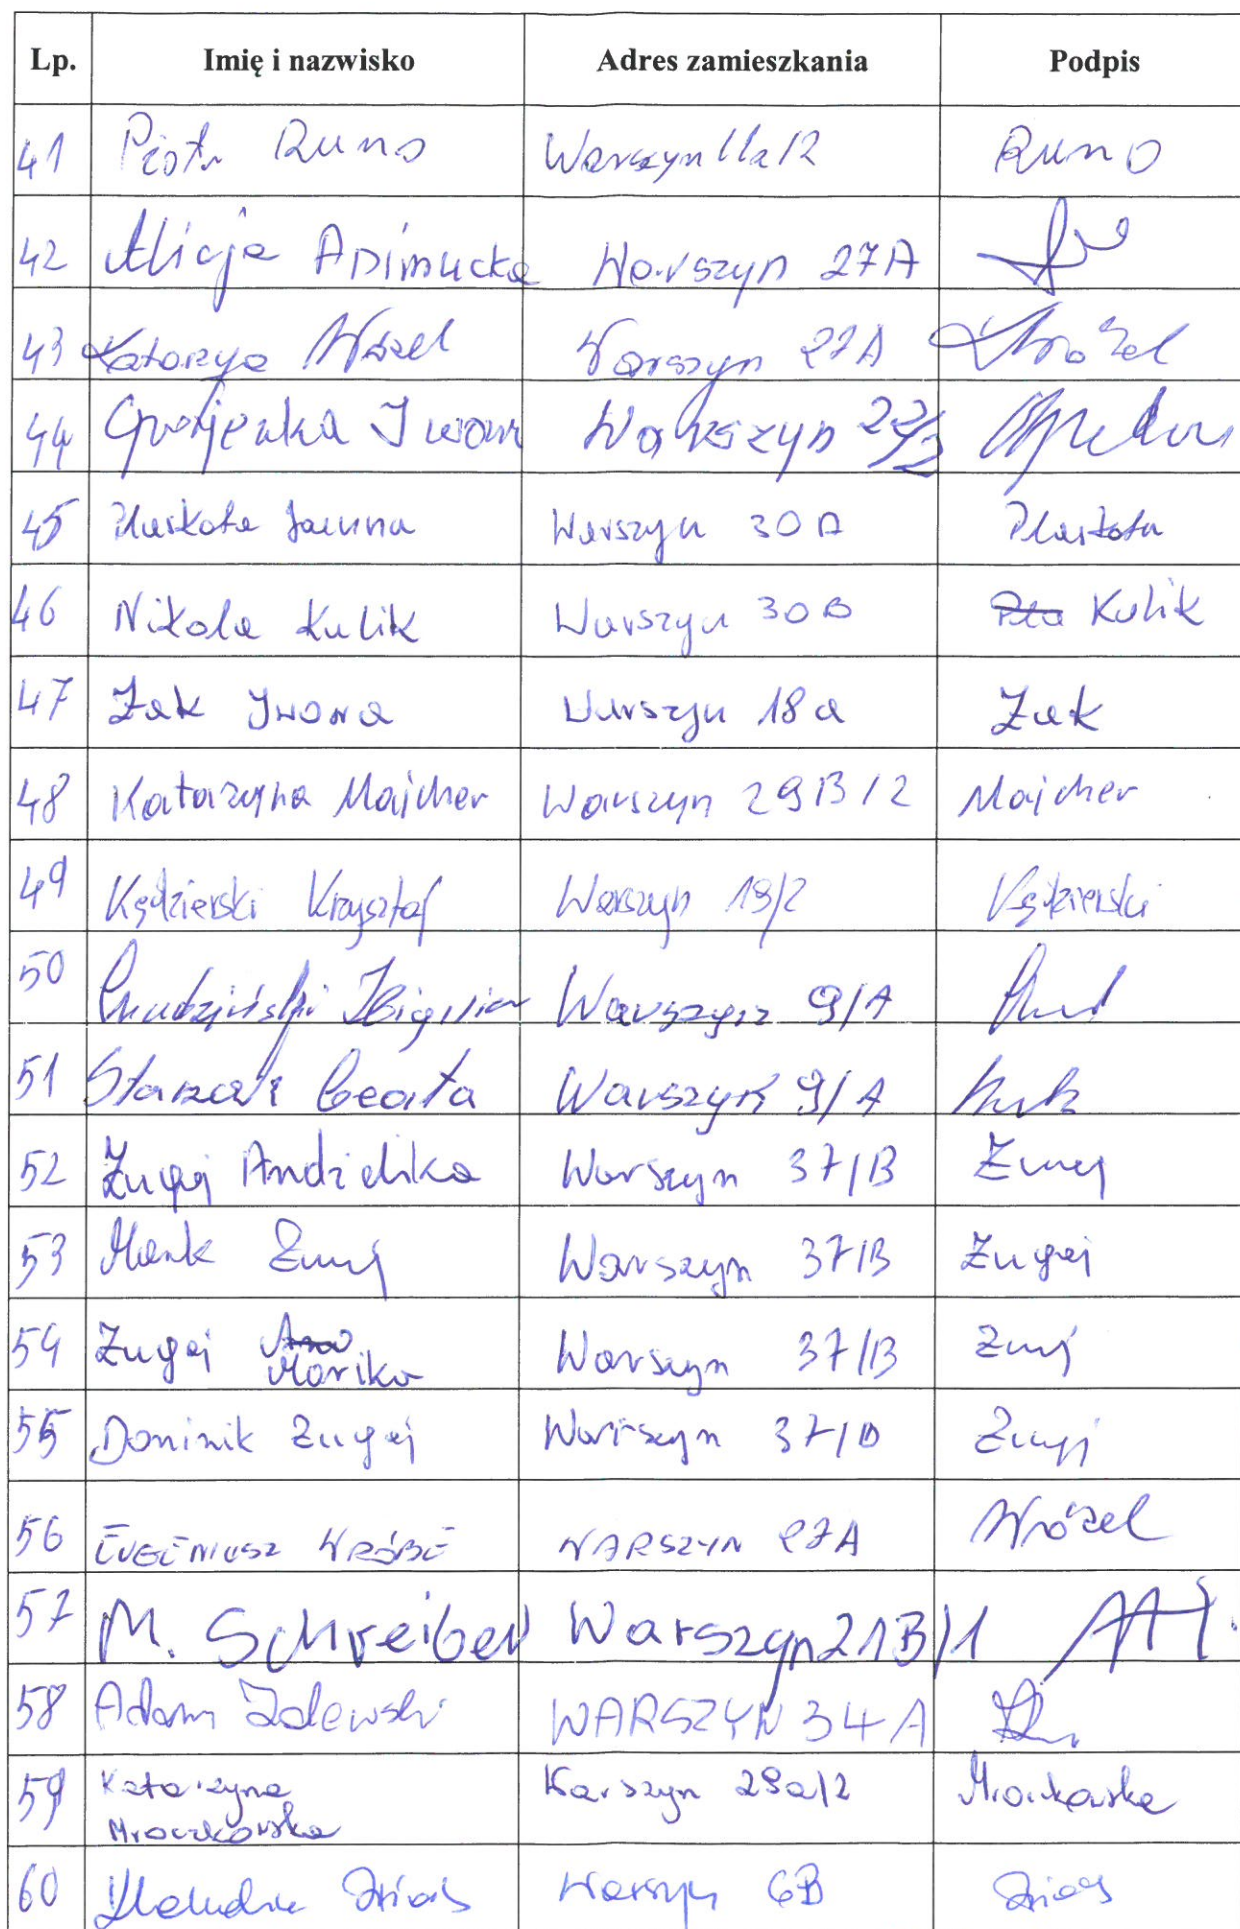 Lp. Imię i nazwisko Adres zamieszkania Podpis
41 Piotr Runo Warszyn 11a/2 Runo
42 Alicja Warszyn 27A
43 Katarzyna Wróbel Warszyn 27A Wróbel
44 Iwona Warszyn
45 Pluskota Joanna Warszyn 30 A Pluskota
46 Nikola Kulik Warszyn 30 B Kulik
47 Żak Iwona Warszyn 18 a Żak
48 Katarzyna Majcher Warszyn 29B/2 Majcher
49 Kędzierski Krzysztof Warszyn 19/2 Kędzierski
50 Chudziński Zbigniew Warszyn 9/A
51 Beata Warszyn 9/A
52 Żugaj Andżelika Warszyn 37/B Żugaj
53 Marek Żugaj Warszyn 37/B Żugaj
54 Żugaj Warszyn 37/B Żugaj
Marika
55 Dominik Żugaj Warszyn 37/B Żugaj
56 EUGENIUSZ WRÓBEL WARSZYN 27A Wróbel
57 M. Schreiber Warszyn 21B/1
58 Adam Zalewski WARSZYN 34A
59 Katarzyna Karszyn 29a/2 Mroczkowska
Mroczkowska
60 Warszyn 6B